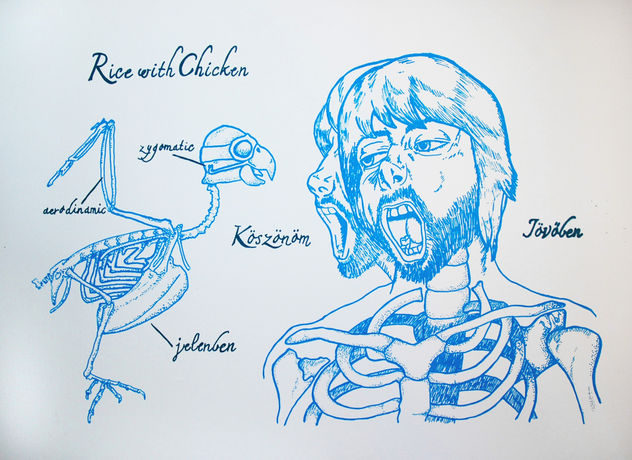 Rice with Chicken
zygomatic
aerodinamic
Köszönöm
Jövöben
jelenben